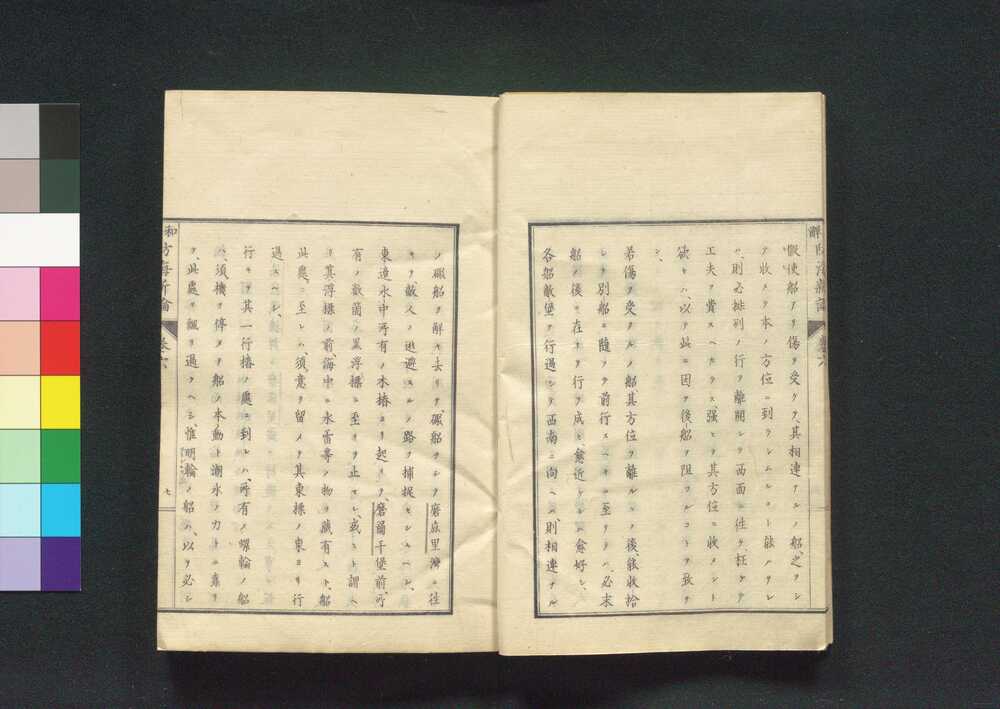 假使船アリ傷ヲ受クヲ、其相連ナルノ船、之ヲシ
テ收メテ本ノ方位ニ到ラシムルコト能ハサレ
ハ、則必排列ノ行ヲ離開シテ西面ニ往ク、枉ケテ
工夫ヲ費スヘカラス、强ヒテ其方位ニ收メント
欲セハ、以テ此ニ因テ後船ヲ阻ツルコトヲ致サ
ン、
若傷ヲ受クルノ船其方位ヲ離ルノ後、能收拾
シテ別船ニ隨フテ前行スヘキニ至ラハ、必末
船ノ後ニ在テ行ヲ成セ、愈近シテ愈好シ、
各船敵堡ヲ行過シテ西南ニ向ヘハ、則相連ナル
ノ礟船ヲ解キ去リテ、礟船ヲシテ磨庇里灣ニ往
キテ敵人ノ逃避スルノ路ヲ捕捉セシムヘシ、
東邊水中所有ノ木樁ヨリ起リテ、磨爾干堡前、所
有ノ數箇ノ黑浮標ニ至テ止マレ、或ヒト謂ヘ
リ其浮標ノ前、海中ニ水雷等ノ物ヲ藏有スト、船
此處ニ至レハ、須ク意ヲ留メテ其東標ノ東ヨリ行
過スヘシ、
行キテ其一行樁ノ處ニ到レハ、所有ノ螺輪ノ船
ハ、須ク機ヲ停メテ船ノ本動ト潮水ノ力トニ靠リ
テ、此處ヲ飄リ過クヘシ、惟明輪ノ船ハ、以テ必シ
七